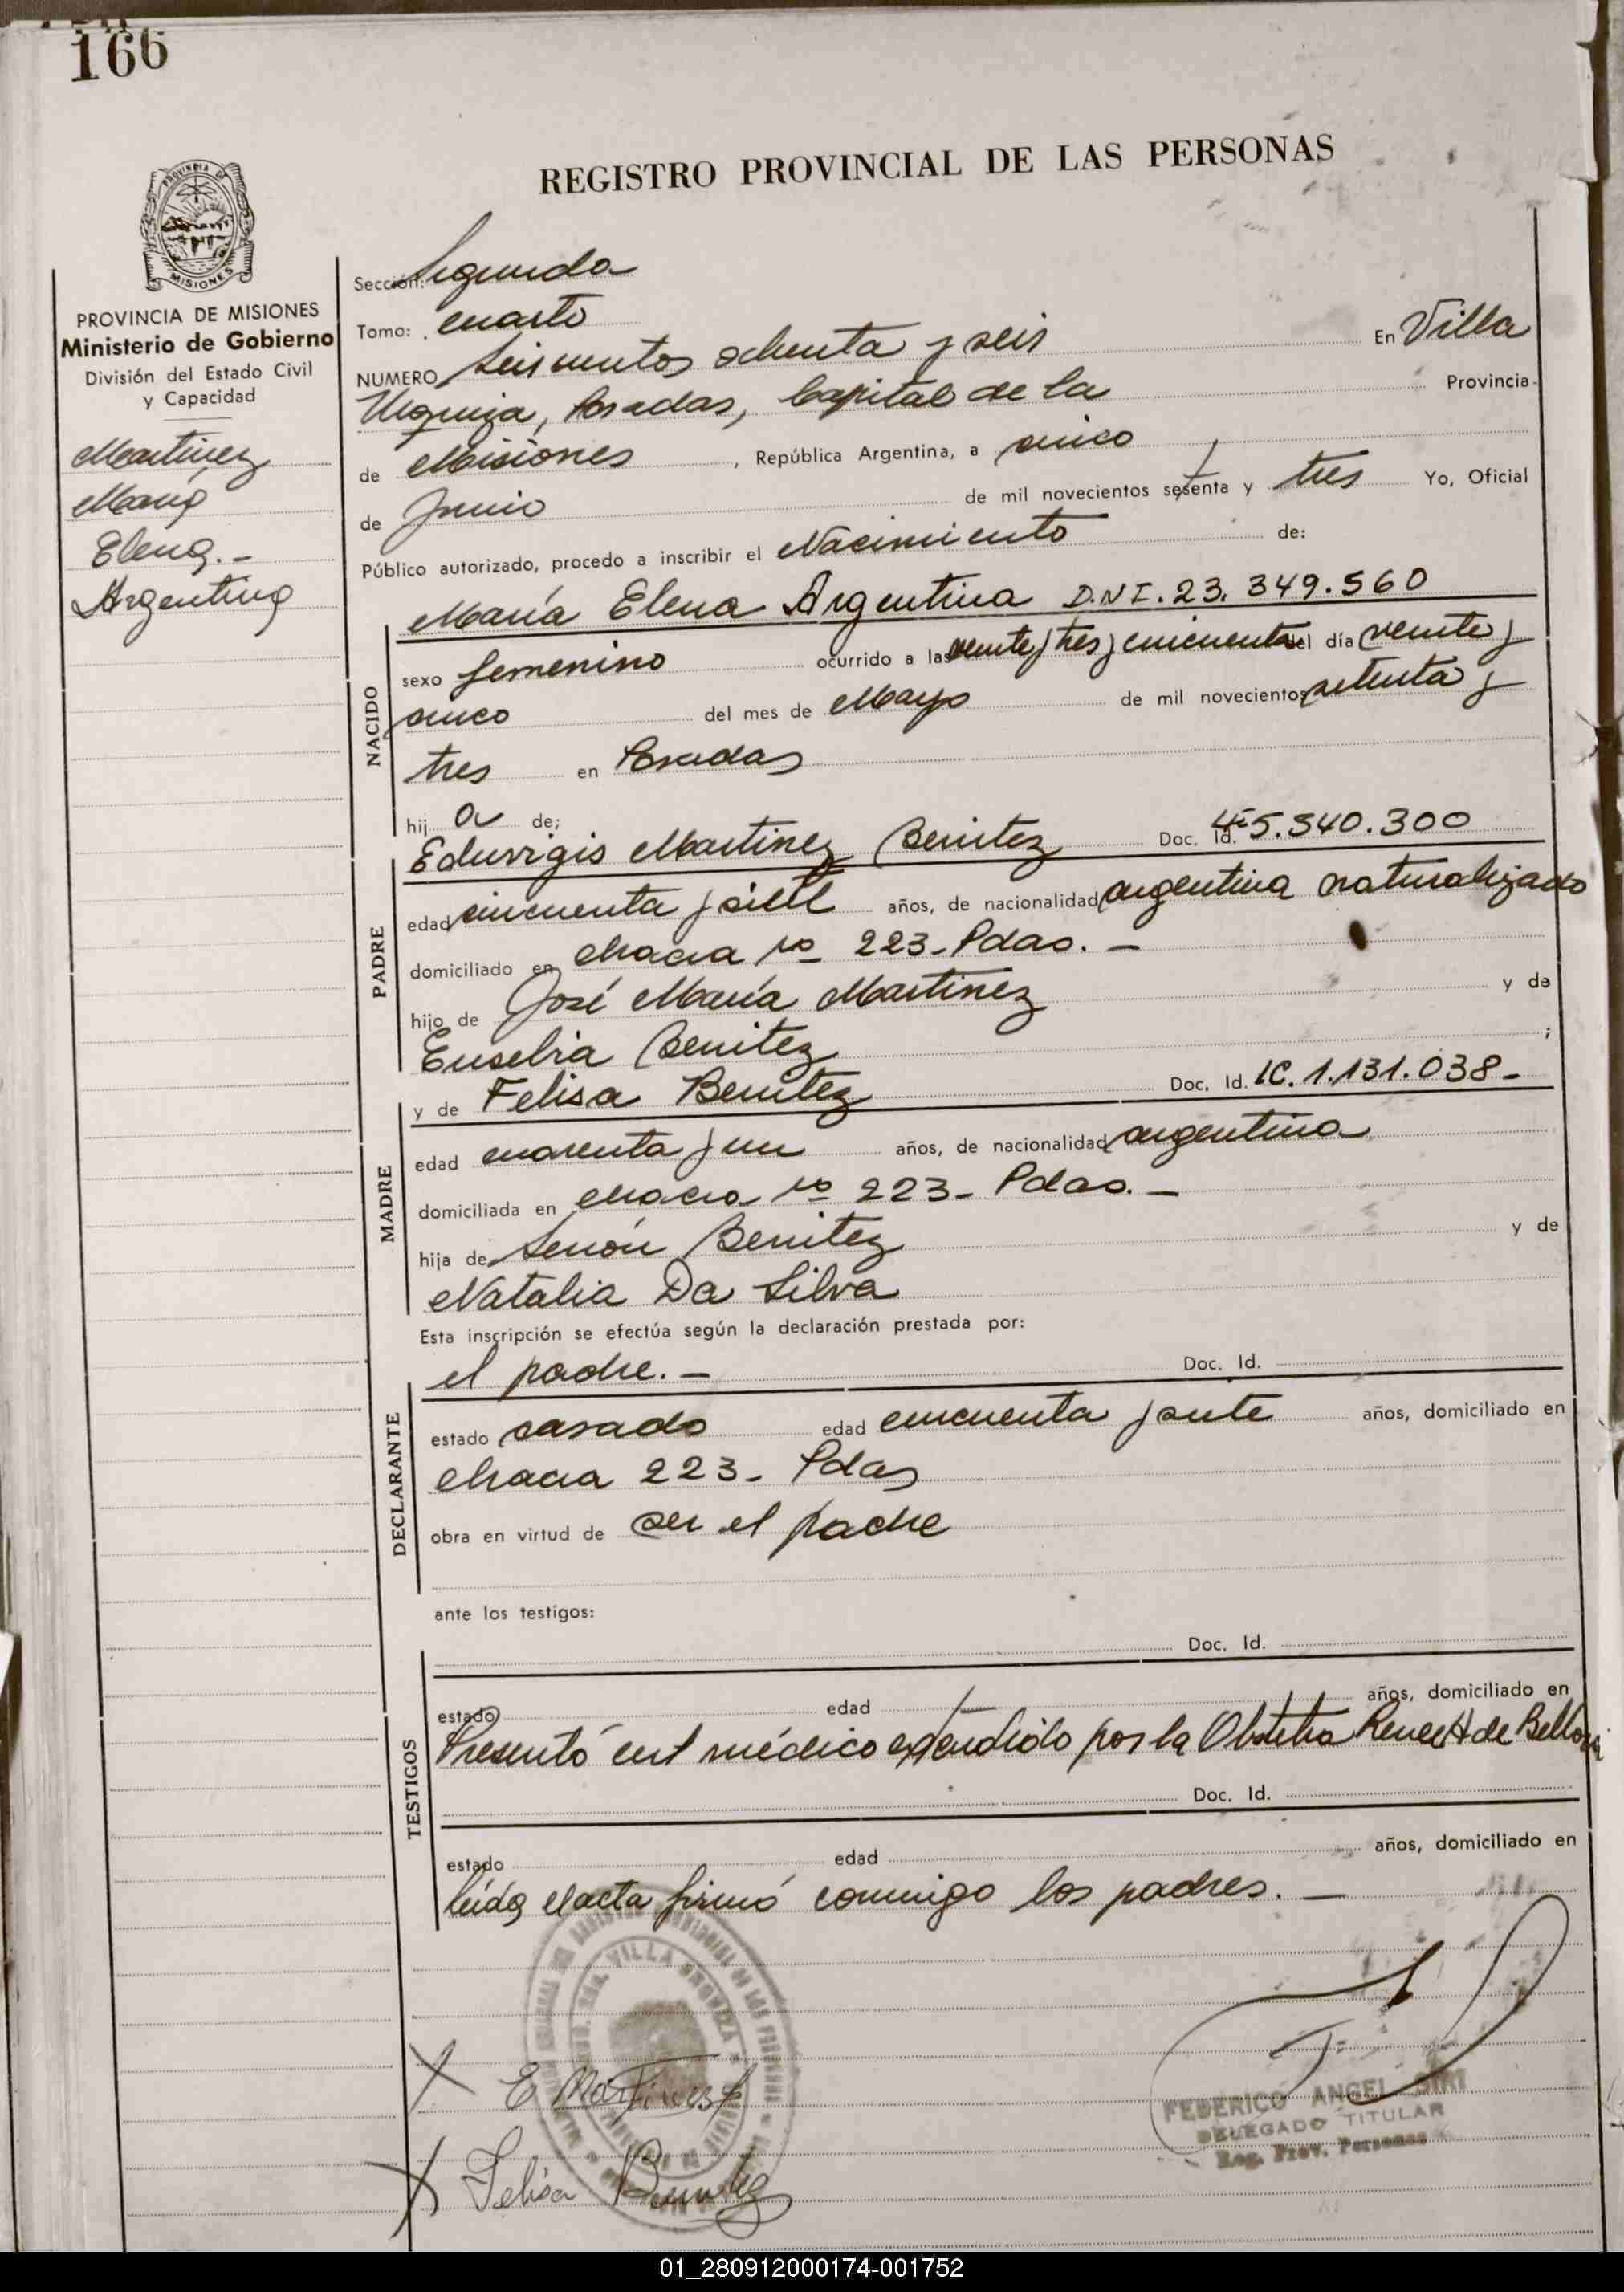 166
REGISTRO PROVINCIAL DE LAS PERSONAS
PROVINCIA DE
MISIONES
PROVINCIA DE MISIONES
Ministerio de Gobierno
División del Estado Civil
y Capacidad
Martinez
María
Elena.-
Argentina
Sección: Segunda
Tomo: cuarto
NUMERO Seiscientos ochenta y seis En Villa
Urquiza, Posadas, Capital de la Provincia
de Misiones, República Argentina, a cinco
de Junio de mil novecientos setenta y tres Yo, Oficial
Público autorizado, procedo a inscribir el Nacimiento de:
María Elena Argentina D.N.I. 23.349.560
NACIDO
sexo femenino ocurrido a las veinte y tres y cincuenta del día veinte y
cinco del mes de Mayo de mil novecientos setenta y
tres en Posadas
hij a de;
Eduvigis Martinez Benitez Doc. Id. 5.540.300
PADRE
edad cincuenta y siete años, de nacionalidad argentina naturalizado
domiciliado en chacra no 223- Pdas. -
hijo de José María Martinez y de
Eusebia Benitez ;
y de Felisa Benitez Doc. Id. LC. 1.131.038-
MADRE
edad cuarenta y un años, de nacionalidad argentina
domiciliada en chacra no 223- Pdas. -
hija de Senón Benitez y de
Natalia Da Silva
Esta inscripción se efectúa según la declaración prestada por:
el padre. - Doc. Id.
DECLARANTE
estado casado edad cincuenta y siete años, domiciliado en
chacra 223- Pdas
obra en virtud de ser el padre
ante los testigos:
Doc. Id.
TESTIGOS
estado edad años, domiciliado en
Presentó cert médico extendido por la Obstetra Renee H de Belloni
Doc. Id.
estado edad años, domiciliado en
leída el acta firmó conmigo los padres. -
VILLA URQUIZA
E Martinez
FEDERICO ANGEL SIRI
DELEGADO TITULAR
Reg. Prov. Personas
Felisa Benitez
01_280912000174-001752